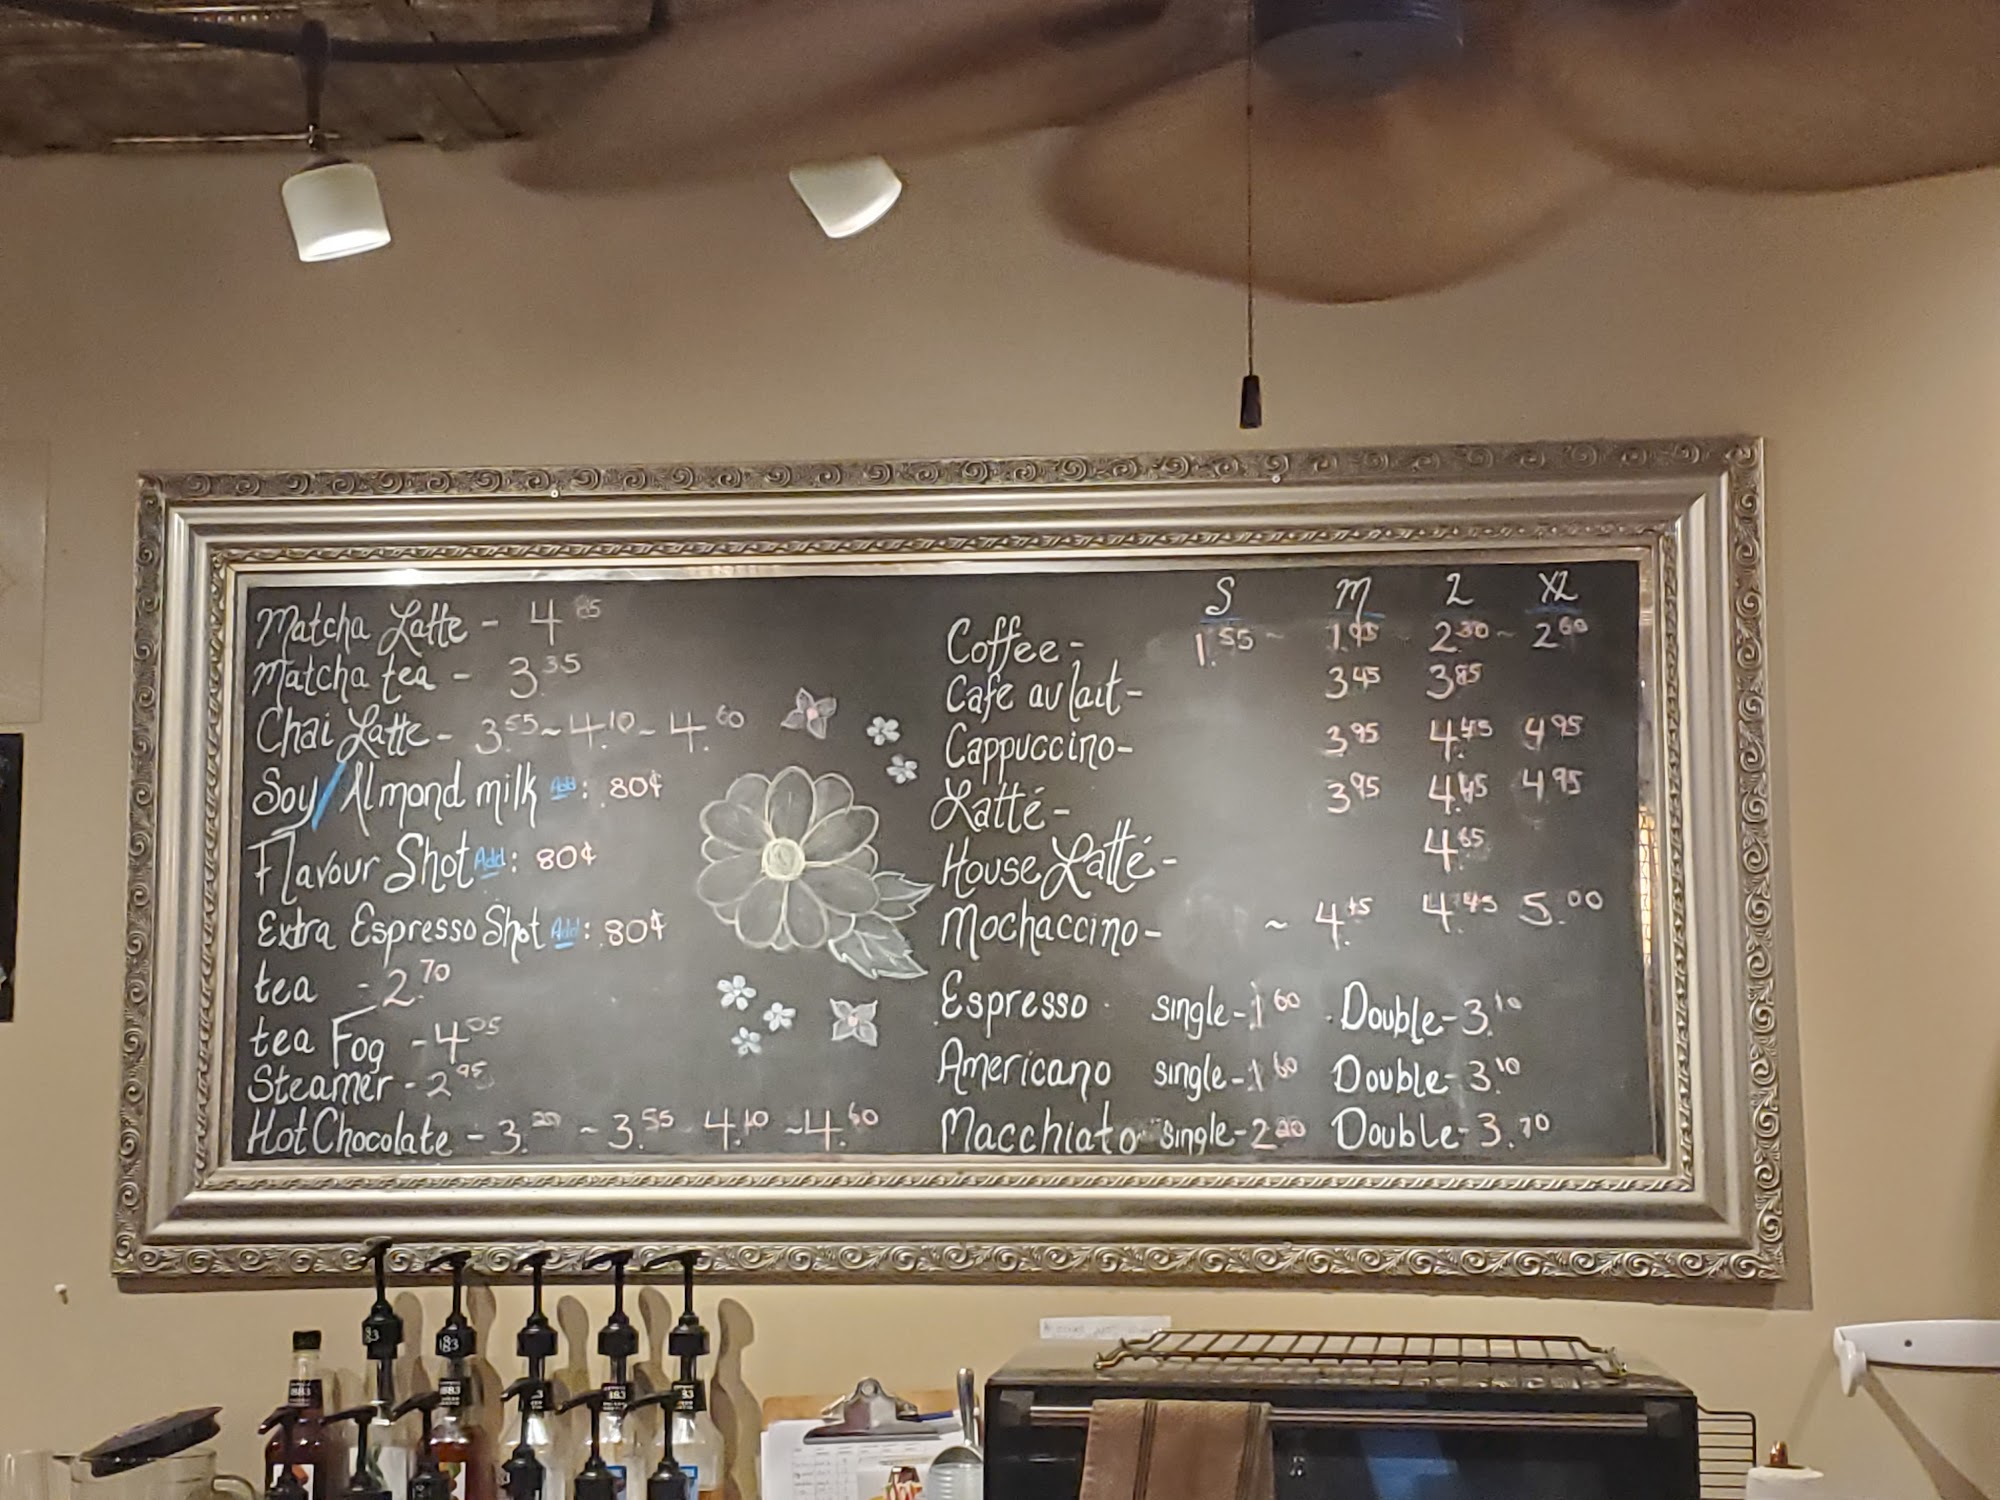 Matcha Latte - 4.85
Matcha tea - 3.35
Chai Latte - 3.55 ~ 4.10 ~ 4.60
Soy/Almond milk Add: .80¢
Flavour Shot Add: 80¢
Extra Espresso Shot Add: .80¢
tea - 2.70
tea Fog - 4.05
Steamer - 2.95
Hot Chocolate - 3.20 ~ 3.55 4.10 ~ 4.60
S M L XL
Coffee - 1.55 ~ 1.95 ~ 2.30 ~ 2.60
Cafe au lait - 3.45 3.85
Cappuccino - 3.95 4.45 4.95
Latté - 3.95 4.45 4.95
House Latté - 4.65
Mochaccino - ~ 4.15 4.45 5.00
Espresso single - 1.60 Double - 3.10
Americano single - 1.60 Double - 3.10
Macchiato single - 2.20 Double - 3.70
1883
1883